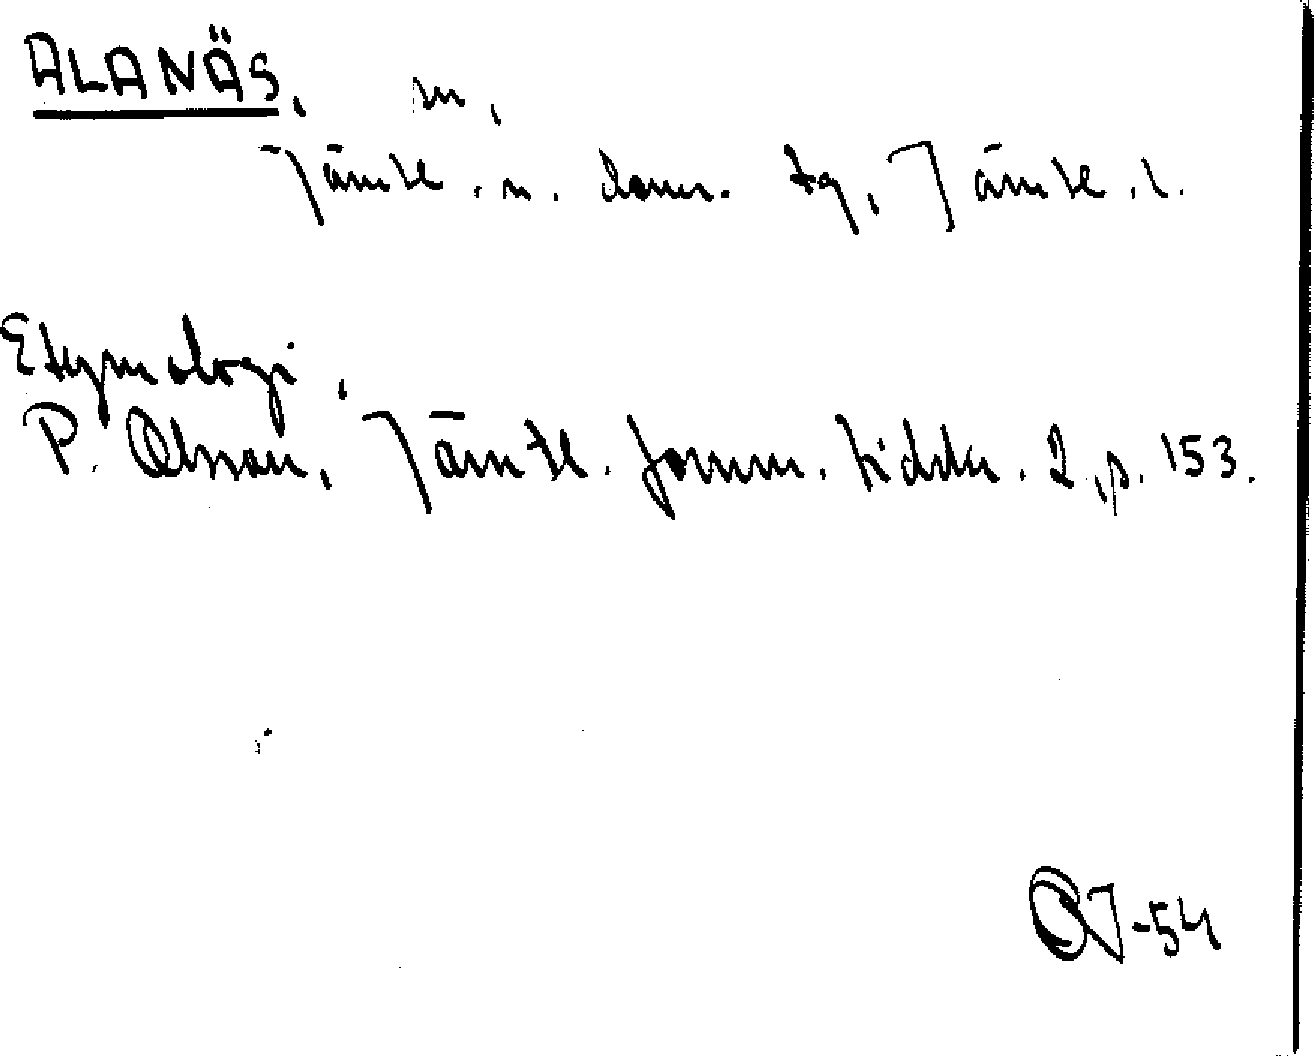 ALANÄS, sn,
Jämtl. n. doms. tg, Jämtl. l.
Etymologi,
P. Olsson, Jämtl. fornm. tidskr. 2, p. 153.
OJ-54